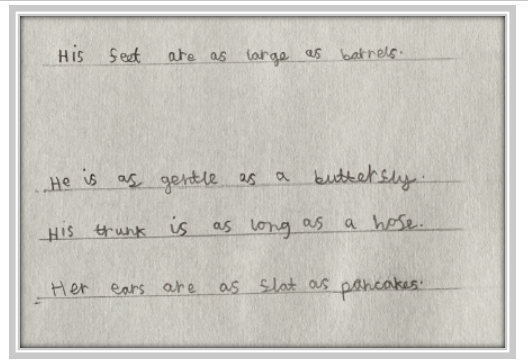 His feet are as large as barrels.
He is as gentle as a butterfly.
His trunk is as long as a hose.
Her ears are as flat as pancakes.